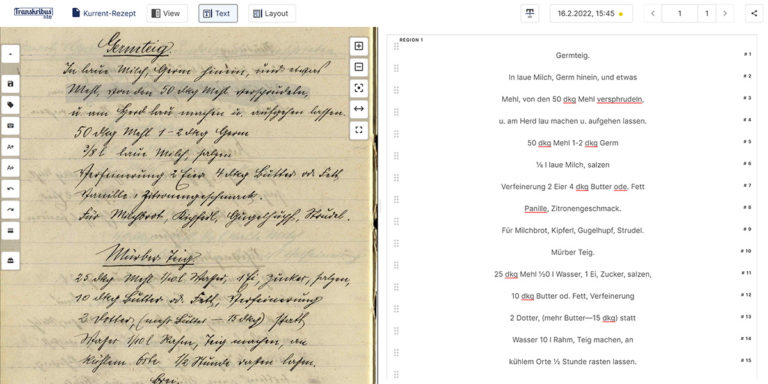 Transkribus lite
Kurrent-Rezept
View
Text
Layout
16.2.2022, 15:45
1
1
Germteig.
In laue Milch, Germ hinein, und etwas
Mehl, von den 50 dkg Mehl versprudeln,
u. am Herd lau machen u. aufgehen lassen.
50 dkg Mehl 1-2 dkg Germ
3/8 l laue Milch, salzen
Verfeinerung 2 Eier 4 dkg Butter od. Fett
Vanille, Zitronengeschmack.
Für Milchbrot, Kipferl, Gugelhupf, Strudel.
Mürber Teig.
25 dkg Mehl 1/10 l Wasser, 1 Ei, Zucker, salzen,
10 dkg Butter od. Fett, Verfeinerung
2 Dotter, (mehr Butter — 15 dkg) statt
Wasser 1/10 l Rahm, Teig machen, an
kühlem Orte 1/2 Stunde rasten lassen.
REGION 1
Germteig. # 1
In laue Milch, Germ hinein, und etwas # 2
Mehl, von den 50 dkg Mehl versphrudeln, # 3
u. am Herd lau machen u. aufgehen lassen. # 4
50 dkg Mehl 1-2 dkg Germ # 5
⅛ l laue Milch, salzen # 6
Verfeinerung 2 Eier 4 dkg Butter ode. Fett # 7
Panille, Zitronengeschmack. # 8
Für Milchbrot, Kipferl, Gugelhupf, Strudel. # 9
Mürber Teig. # 10
25 dkg Mehl ½0 l Wasser, 1 Ei, Zucker, salzen, # 11
10 dkg Butter od. Fett, Verfeinerung # 12
2 Dotter, (mehr Butter—15 dkg) statt # 13
Wasser 10 l Rahm, Teig machen, an # 14
kühlem Orte ½ Stunde rasten lassen. # 15